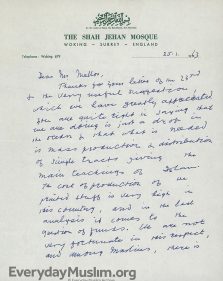 THE SHAH JEHAN MOSQUE
WOKING - SURREY - ENGLAND
Telephone: Woking 679
25.1.63
Dear Mr
Thanks for your letter of the 23rd
& the very useful suggestion,
which we have greatly appreciated.
You are quite right in saying that
we are doing is just a drop in
the ocean & that what is needed
is mass production & distribution
of simple tracts giving the
main teachings of Islam.
The cost of production of
printed stuff is very high in
this country, and in the last
analysis it comes to the
question of funds. We are not
very fortunate in this respect,
and among Muslims, there is
EverydayMuslim.org